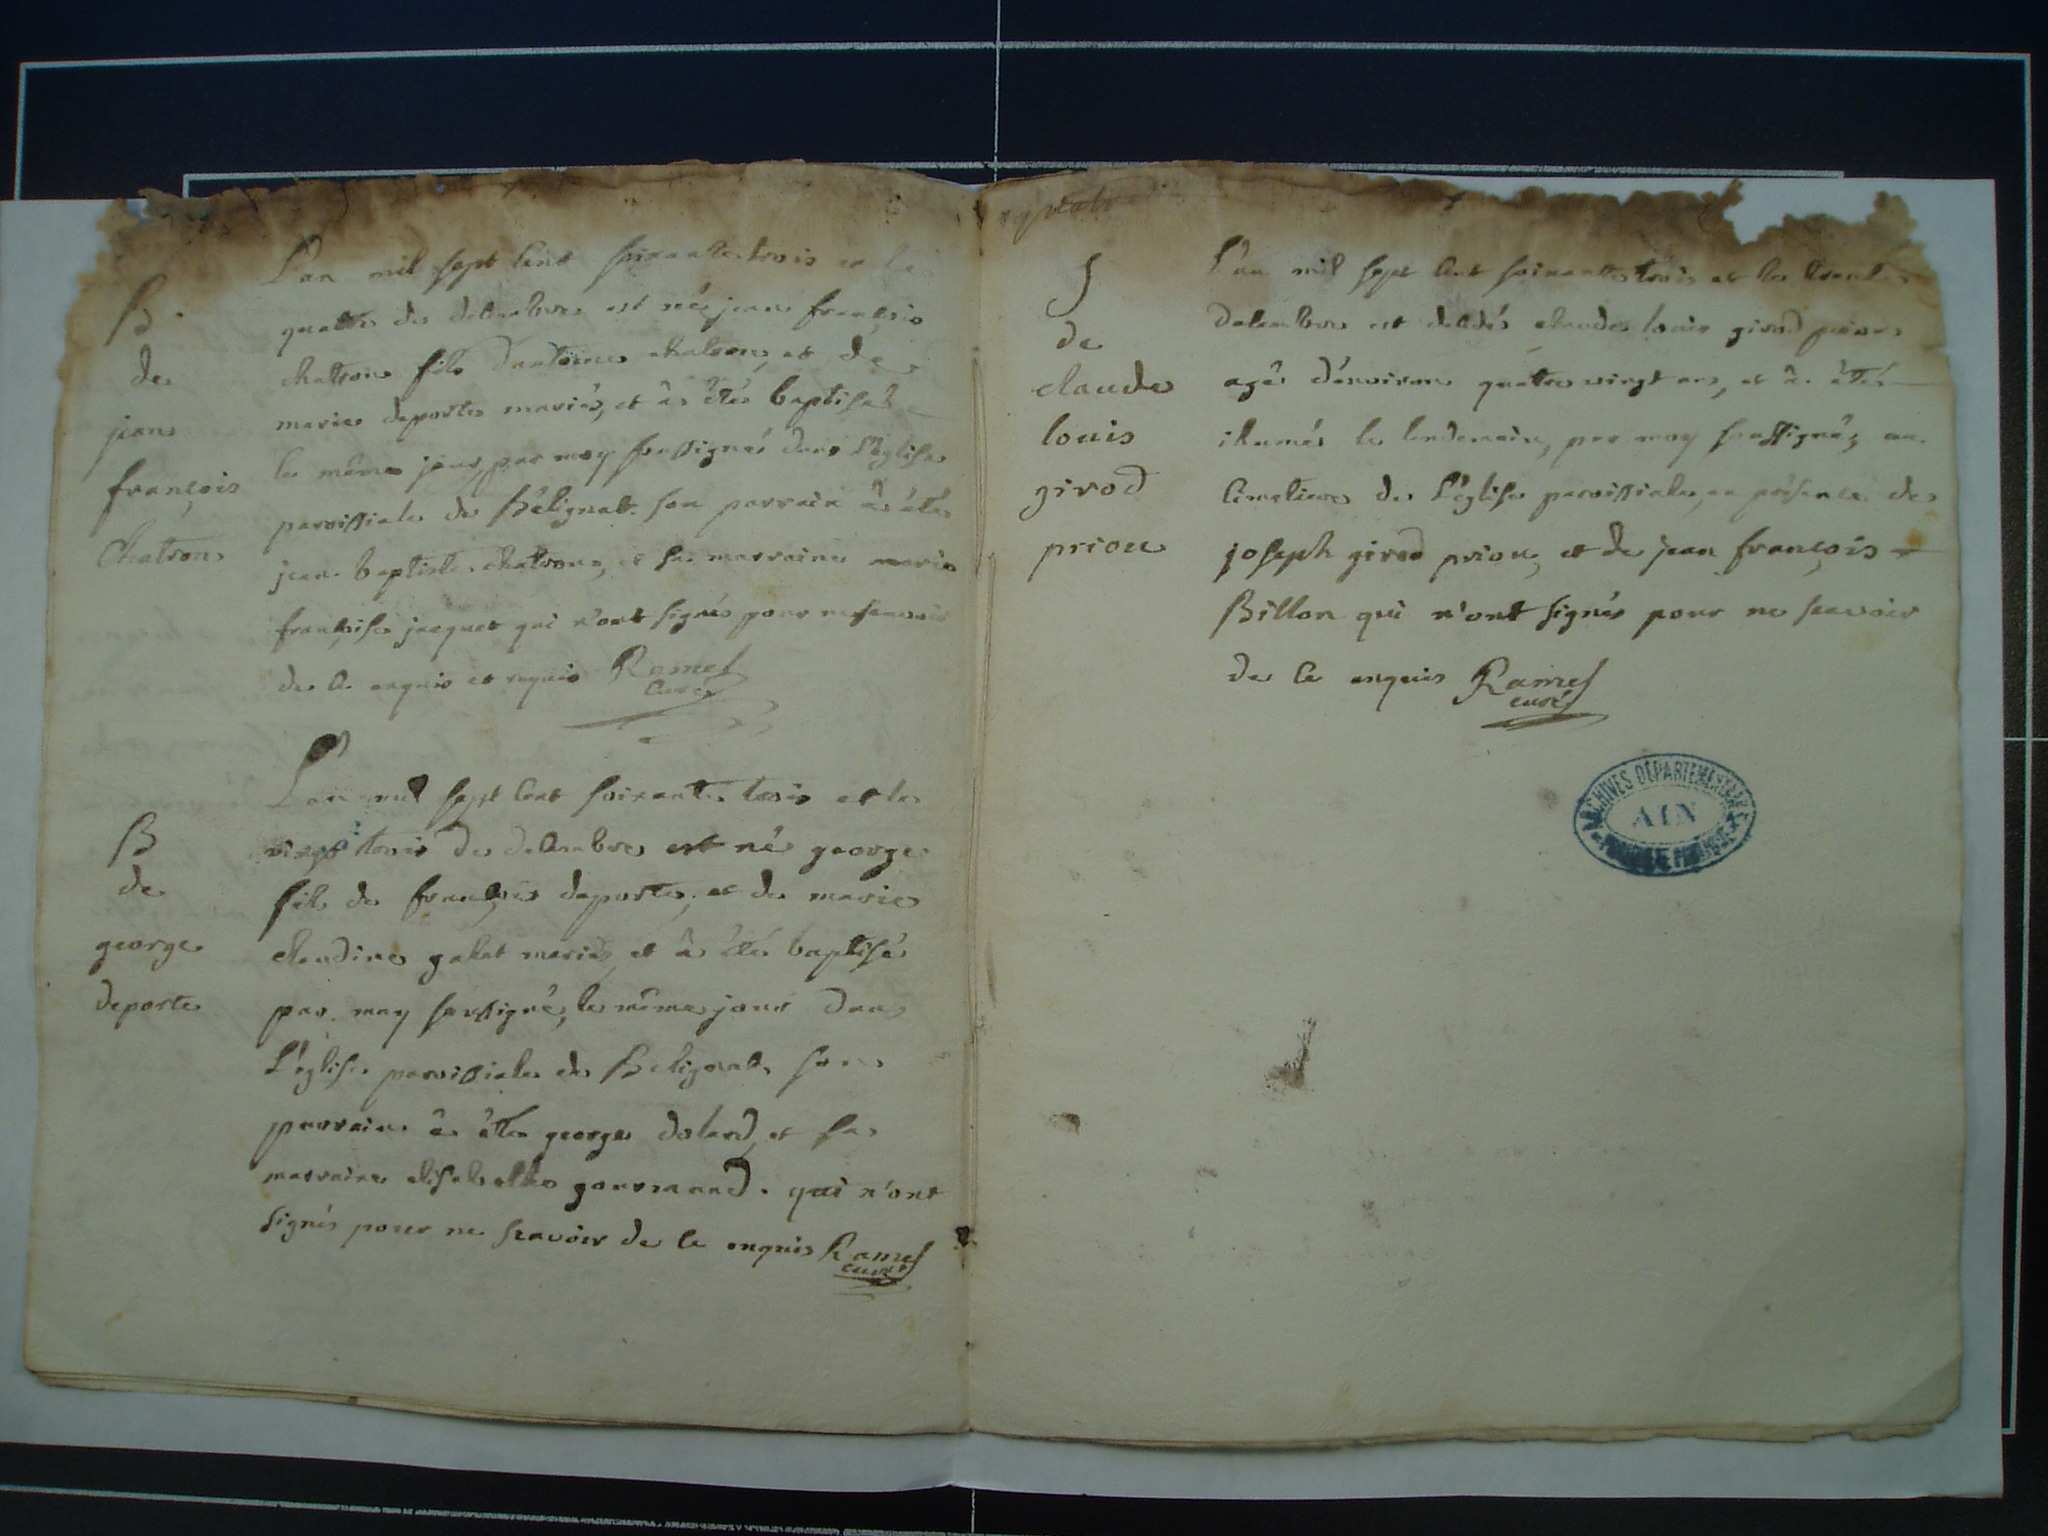 B
de
jean
françois
Chatron
L'an mil sept Cent soixante trois et le
quattre de decembre est né jean françois
chatron fils d'antoine chatron, et de
marie deporte mariés, et â étés baptisé
le même jour par moy soussigné dans L'église
paroissiale de Bélignat. son parrain â étés
jean baptiste chatron, et sa marraine marie
françoise jacquet qui n'ont signés pour ne scavoir
de ce enquis et requis Ramel
curé
B
de
george
deporte
L'an mil sept Cent soixante trois et le
vingt trois de decembre est né george
fils de françois deporte, et de marie
claudine galet mariés, et â étés baptisé
par moy soussigné, le même jour dans
L'église paroissiale de Belignat, son
parrain â étés george dolard, et sa
marraine elisabette gourmand. qui n'ont
signés pour ne scavoir de ce enquis Ramel
curé
S
de
claude
louis
girod
priou
L'an mil sept Cent soixante trois et le trente
decembre est decedés claude louis girod priou
agé d'environ quatre vingt ans, et â étés
ihumés le lendemain, par moy soussigné, au
Cimetiere de L'église paroissiale, en présence de
joseph girod priou, et de jean françois
Billon qui n'ont signés pour ne scavoir
de ce enquis Ramel
curé
ARCHIVES DÉPARTEMENTALES
AIN